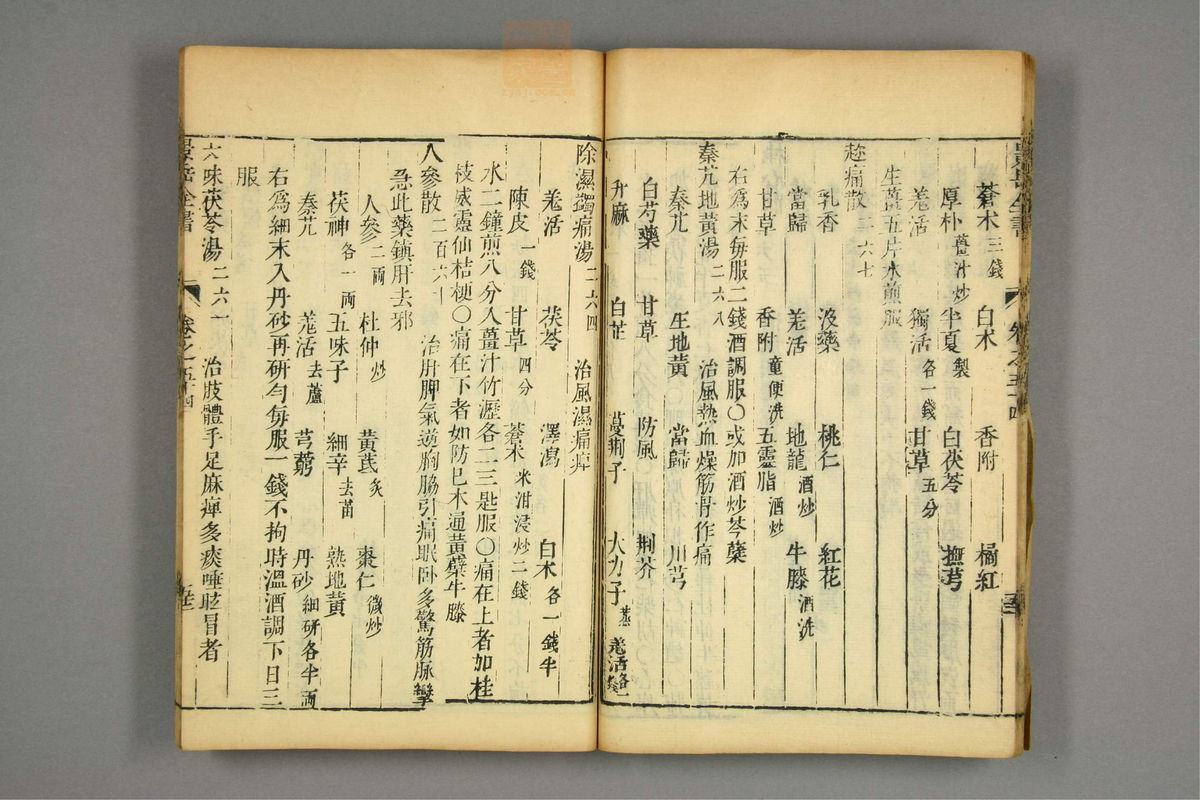 景岳全書 卷之五十四
蒼朮三錢 白朮 香附 橘紅
厚朴薑汁炒 半夏製 白茯苓 撫芎
羌活 獨活各一錢 甘草五分
生薑五片水煎服
趂痛散二六七
乳香 沒藥 桃仁 紅花
當歸 羌活 地龍酒炒 牛膝酒洗
甘草 香附童便洗 五靈脂酒炒
右爲末每服二錢酒調服〇或加酒炒芩蘗
秦艽地黃湯二六八 治風熱血燥筋骨作痛
秦艽 生地黃 當歸 川芎
白芍藥 甘草 防風 荆芥
升麻 白芷 蔓荆子 大力子蒸 羌活各一錢
除濕蠲痛湯二六四 治風濕痛痺
羌活 茯苓 澤瀉 白朮各一錢半
陳皮一錢 甘草四分 蒼朮米泔浸炒二錢
水二鐘煎八分入薑汁竹瀝各二三匙服〇痛在上者加桂
枝威靈仙桔梗〇痛在下者如防巳木通黃蘗牛膝
人參散二百六十 治肝脾氣逆胸脇引痛眠卧多驚筋脉攣
急此藥鎮肝去邪
人參二兩 杜仲炒 黃芪炙 棗仁微炒
茯神各一兩 五味子 細辛去苗 熟地黃
秦艽 羌活去蘆 芎藭 丹砂細研各半兩
右爲細末入丹砂再研勻每服一錢不拘時溫酒調下日三
服
六味茯苓湯二六一 治肢體手足麻痺多痰唾眩冒者
景岳全書 卷之五十四